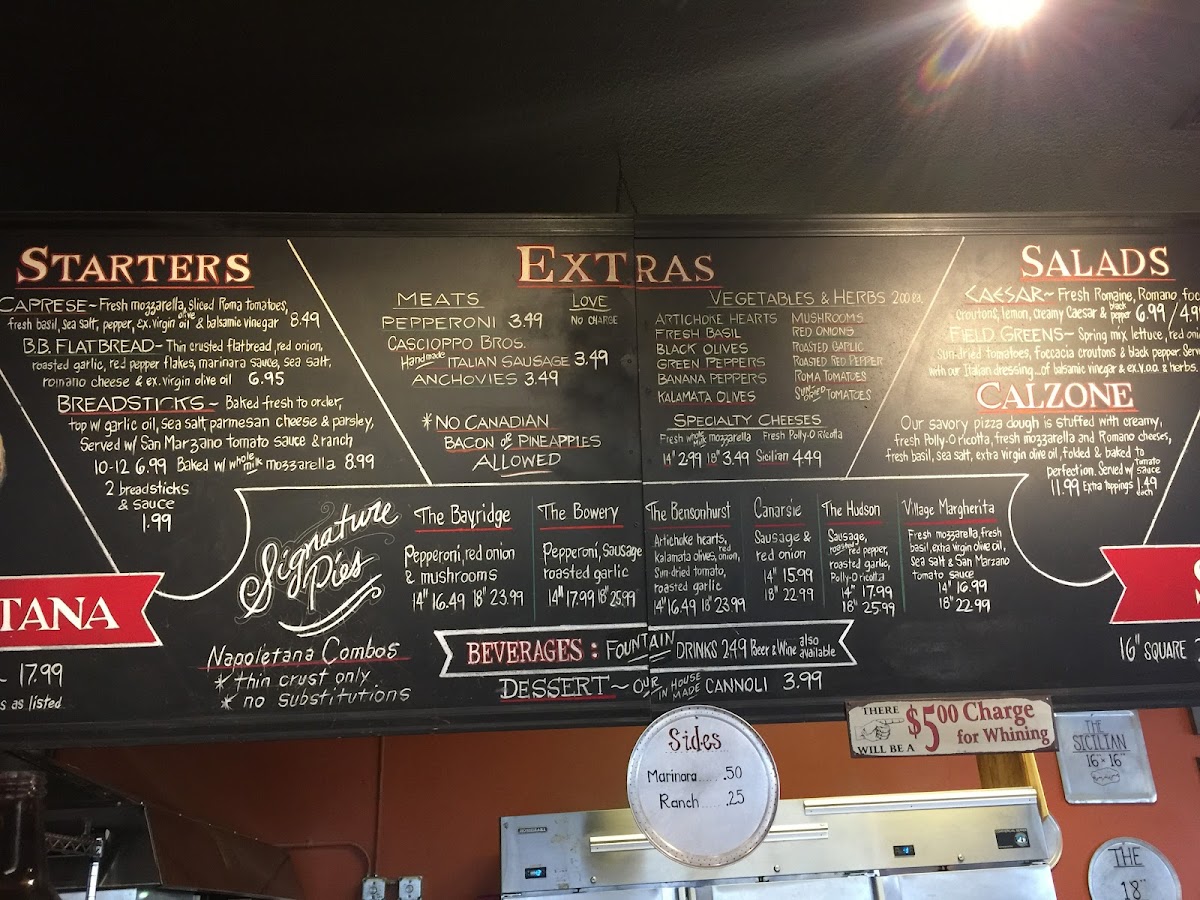 STARTERS
CAPRESE ~ Fresh mozzarella, sliced Roma tomatoes,
fresh basil, sea salt, pepper, ex. virgin olive oil & balsamic vinegar 8.49
B.B. FLATBREAD ~ Thin crusted flatbread, red onion,
roasted garlic, red pepper flakes, marinara sauce, sea salt,
romano cheese & ex. virgin olive oil 6.95
BREADSTICKS ~ Baked fresh to order,
top w/ garlic oil, sea salt, parmesan cheese & parsley,
Served w/ San Marzano tomato sauce & ranch
10-12 6.99 Baked w/ whole milk mozzarella 8.99
2 breadsticks
& sauce
1.99
EXTRAS
MEATS
PEPPERONI 3.49
CASCIOPPO BROS.
Handmade ITALIAN SAUSAGE 3.49
ANCHOVIES 3.49
LOVE
NO CHARGE
* NO CANADIAN
BACON or PINEAPPLES
ALLOWED
VEGETABLES & HERBS 2.00 ea.
ARTICHOKE HEARTS
FRESH BASIL
BLACK OLIVES
GREEN PEPPERS
BANANA PEPPERS
KALAMATA OLIVES
MUSHROOMS
RED ONIONS
ROASTED GARLIC
ROASTED RED PEPPER
ROMA TOMATOES
SUN-DRIED TOMATOES
SPECIALTY CHEESES
Fresh whole milk mozzarella Fresh Polly-O Ricotta
14" 2.99 18" 3.49 Sicilian 4.49
SALADS
CAESAR ~ Fresh Romaine, Romano,
croutons, lemon, creamy Caesar & black pepper 6.99 /
FIELD GREENS ~ Spring mix lettuce, red
sun-dried tomatoes, Foccacia croutons & black pepper.
with our Italian dressing...of balsamic vinegar & ex.v.o.o. & herbs.
CALZONE
Our savory pizza dough is stuffed with creamy,
fresh Polly-O ricotta, fresh mozzarella and Romano cheeses,
fresh basil, sea salt, extra virgin olive oil, folded & baked to
perfection. Served w/ tomato sauce
11.99 Extra toppings 1.49 each
Signature
Pies
Napoletana Combos
* thin crust only
* no substitutions
The Bayridge
Pepperoni, red onion
& mushrooms
14" 16.49 18" 23.99
The Bowery
Pepperoni, Sausage
roasted garlic
14" 17.99 18" 25.99
The Bensonhurst
Artichoke hearts,
kalamata olives, red onion,
Sun-dried tomato,
roasted garlic
14" 16.49 18" 23.99
Canarsie
Sausage &
red onion
14" 15.99
18" 22.99
The Hudson
Sausage,
roasted red pepper,
roasted garlic,
Polly-O ricotta
14" 17.99
18" 25.99
Village Margherita
Fresh mozzarella, fresh
basil, extra virgin olive oil,
sea salt & San Marzano
tomato sauce
14" 16.99
18" 22.99
BEVERAGES: FOUNTAIN DRINKS 2.49 Beer & Wine also available
DESSERT ~ OUR IN HOUSE MADE CANNOLI 3.99
TANA
~ 17.99
s as listed
S
16" SQUARE
THERE
WILL BE A
$5.00 Charge
for Whining
Sides
Marinara......50
Ranch......25
THE
SICILIAN
16" x 16"
THE
18"